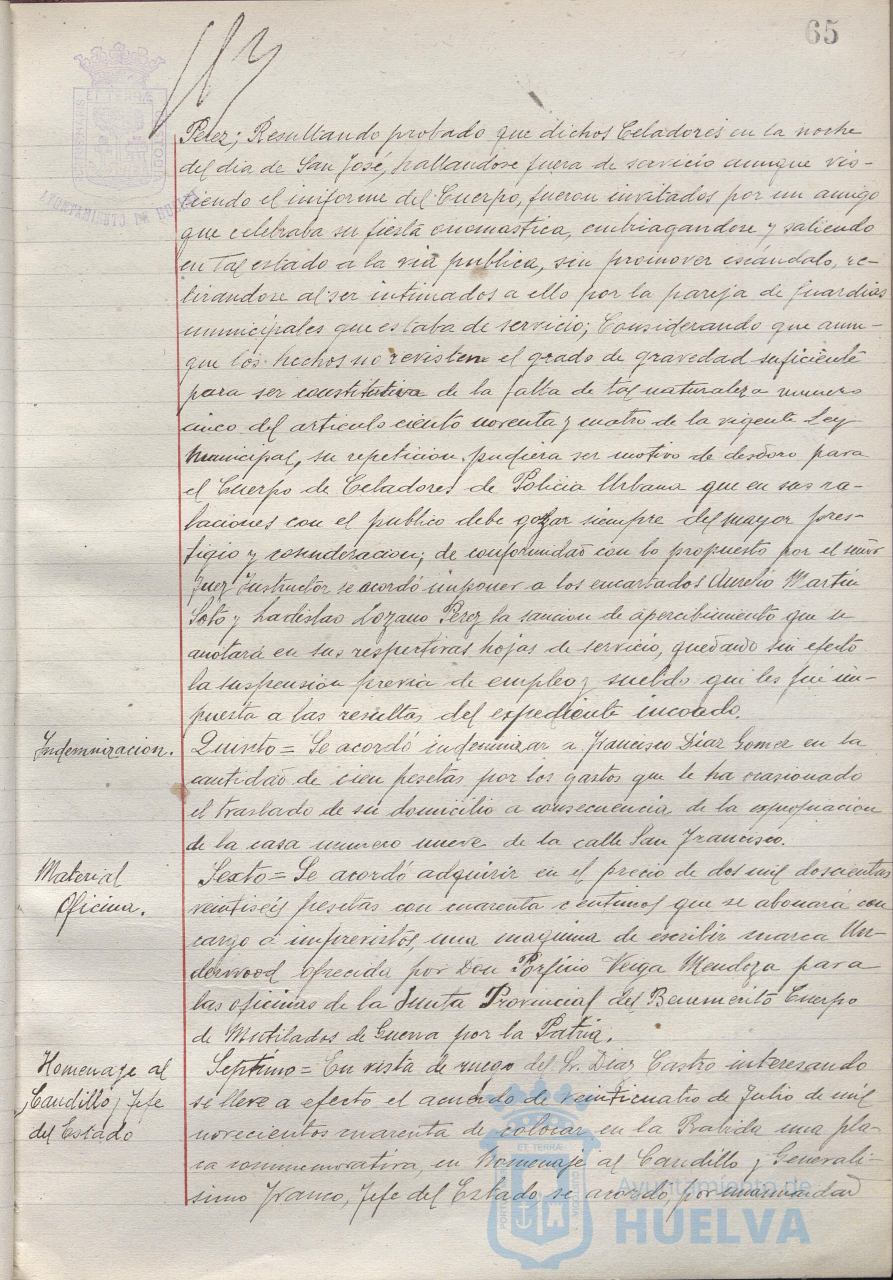 65
Perez; Resultando probado que dichos Celadores en la noche
del dia de San José, hallandose fuera de servicio aunque vis-
tiendo el uniforme del Cuerpo, fueron invitados por un amigo
que celebraba su fiesta onomastica, embriagandose y saliendo
en tal estado a la via publica, sin promover escándalo, re-
tirandose al ser intimados a ello por la pareja de Guardias
municipales que estaba de servicio; Considerando que aun-
que los hechos no revisten el grado de gravedad suficiente
para ser constitutiva de la falta de tal naturaleza numero
cinco del articulo ciento noventa y cuatro de la vigente Ley
Municipal, su repeticion pudiera ser motivo de desdoro para
el Cuerpo de Celadores de Policia Urbana que en sus re-
laciones con el publico debe gozar siempre del mayor pres-
tigio y consideracion; de conformidad con lo propuesto por el señor
Juez Instructor se acordó imponer a los encartados Aurelio Martin
Soto y Ladislao Lozano Perez la sancion de apercibimiento que se
anotará en sus respectivas hojas de servicio, quedando sin efecto
la suspension previa de empleo y sueldo que les fué im-
puesta a las resultas del expediente incoado.
Indemnizacion.
Quinto = Se acordó indemnizar a Francisco Diaz Gomez en la
cantidad de cien pesetas por los gastos que le ha ocasionado
el traslado de su domicilio a consecuencia de la expropiacion
de la casa numero nueve de la calle San Francisco.
Material
Oficina.
Sexto = Se acordó adquirir en el precio de dos mil doscientas
veintiseis pesetas con cuarenta centimos que se abonará con
cargo a imprevistos, una maquina de escribir marca Un-
derwood ofrecida por Don Porfirio Veiga Mendoza para
las oficinas de la Junta Provincial del Benemerito Cuerpo
de Mutilados de Guerra por la Patria.
Homenaje al
Caudillo y Jefe
del Estado
Septimo = En vista de ruego del Sr. Diaz Castro interesando
se lleve a efecto el acuerdo de veinticuatro de Julio de mil
novecientos cuarenta de colocar en la Rabida una pla-
ca conmemorativa, en homenaje al Caudillo y Generali-
simo Franco, Jefe del Estado se acordó, por unanimidad
AYUNTAMIENTO DE HUELVA
Ayuntamiento de
HUELVA